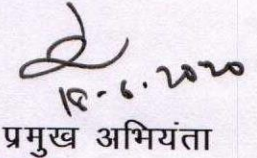 18-6-2020
प्रमुख अभियंता